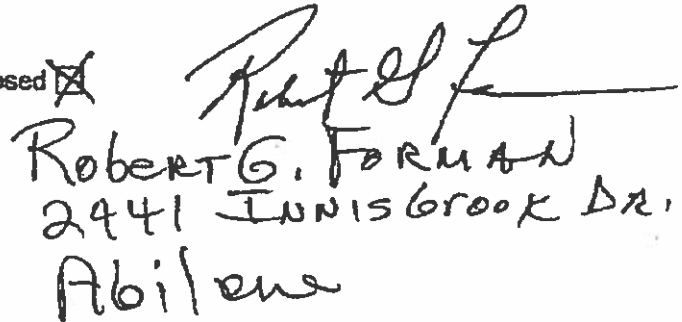 osed ☒ Robert G F
Robert G. Forman
2441 Innisbrook Dr.
Abilene